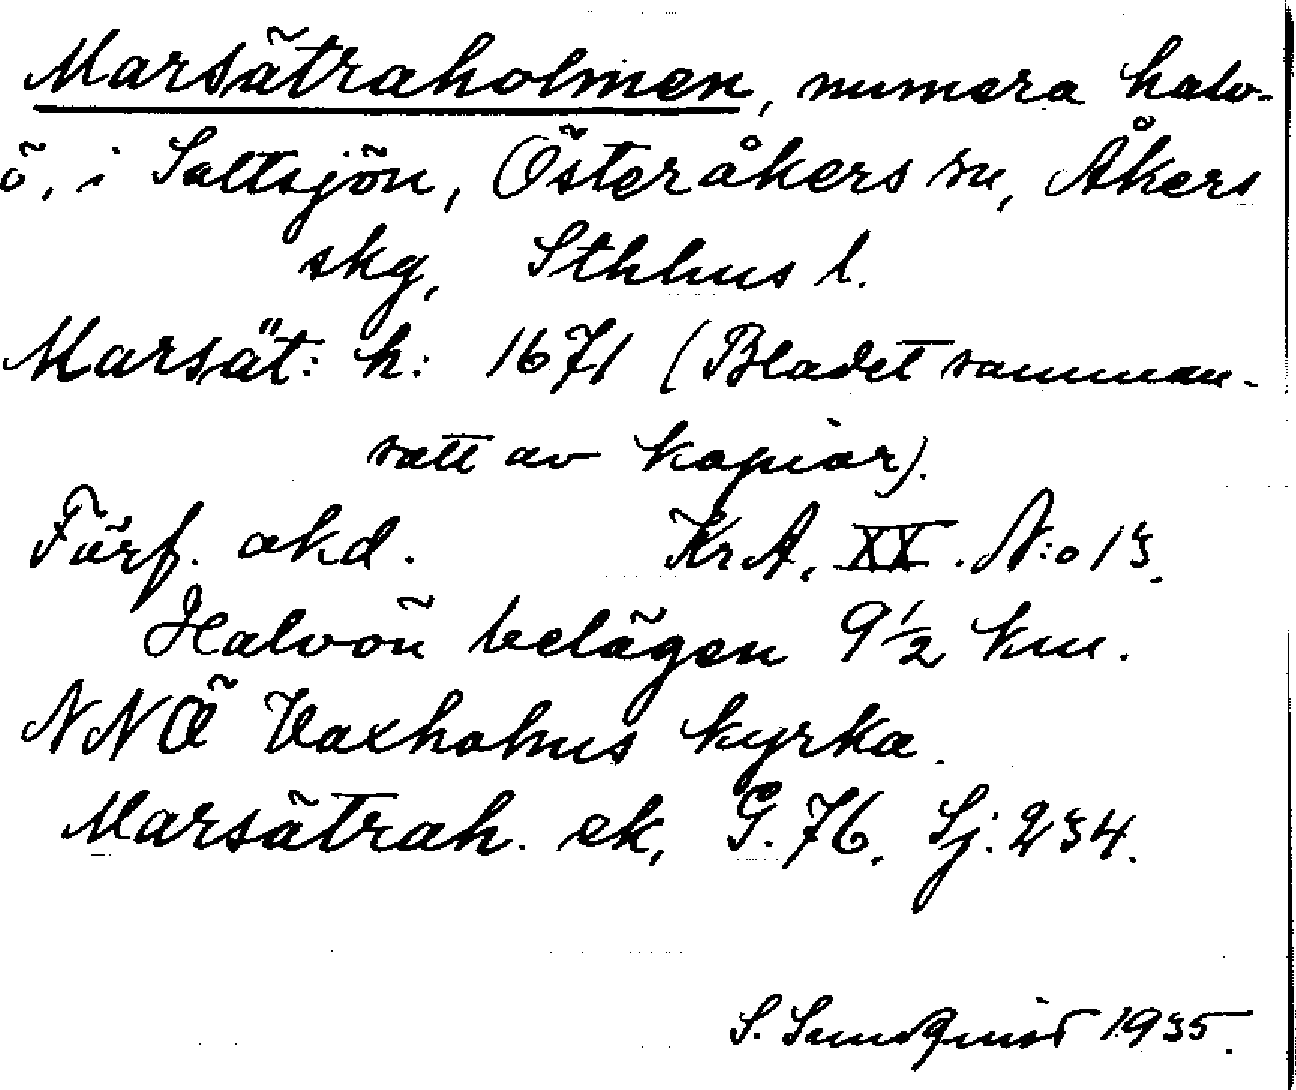 Marsätraholmen, numera halv-
ö, i Saltsjön, Österåkers sn, Åkers
skg, Sthlms l.
Marsät: h: 1671 (Bladet samman-
satt av kopior).
Förf. okd. KrA, XX. N:o 13.
Halvön belägen 9 1/2 km.
NNÖ Vaxholms kyrka.
Marsätrah. ek, G. 76. Sj: 234.
S. Sundquist 1935.